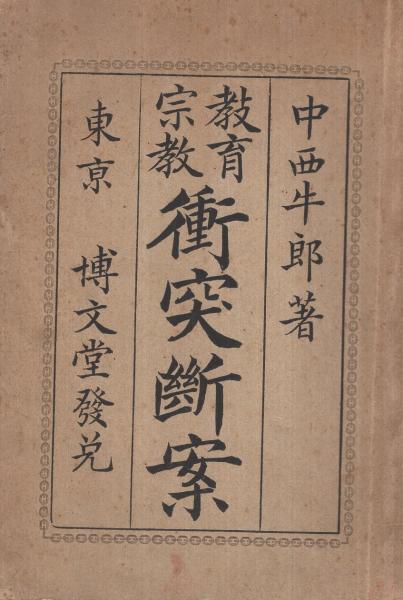 中西牛郎著
教育宗教衝突斷案
東京 博文堂發兌